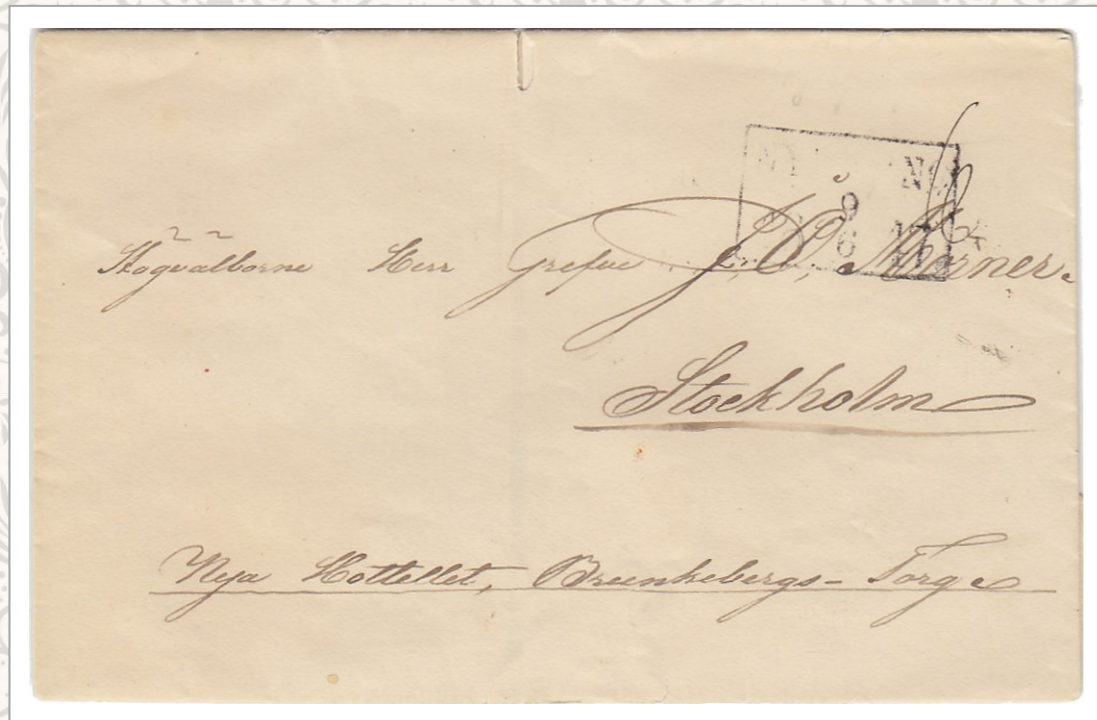 9
6 17
Högvälborne Herr Grefve J. O. Mörner.
Stockholm
Nya Hottellet, Brunkebergs-Torg